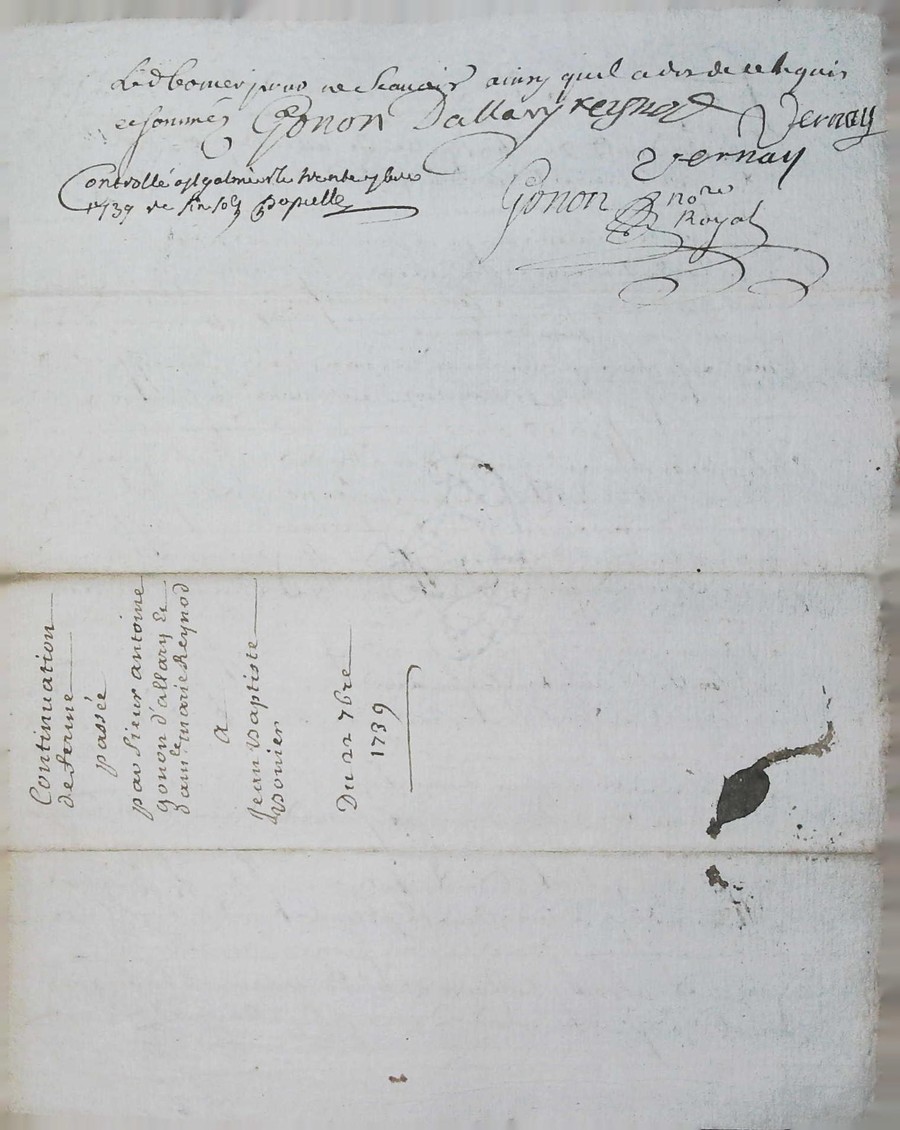 Led bonier pour ne scavoir ainsy quil a dit de ce requis
et sommés Gonon Dallary Reynod Vernay
Vernay
Controllé a st galmier le trente 7bre
1739 Re six sols
Gonon nore
Royal
Continuation
de ferme
passée
par sieur antoine
gonon d'allary Et
damlle marie Reynod
a
Jean baptiste
bonier
Du 22 7bre
1739